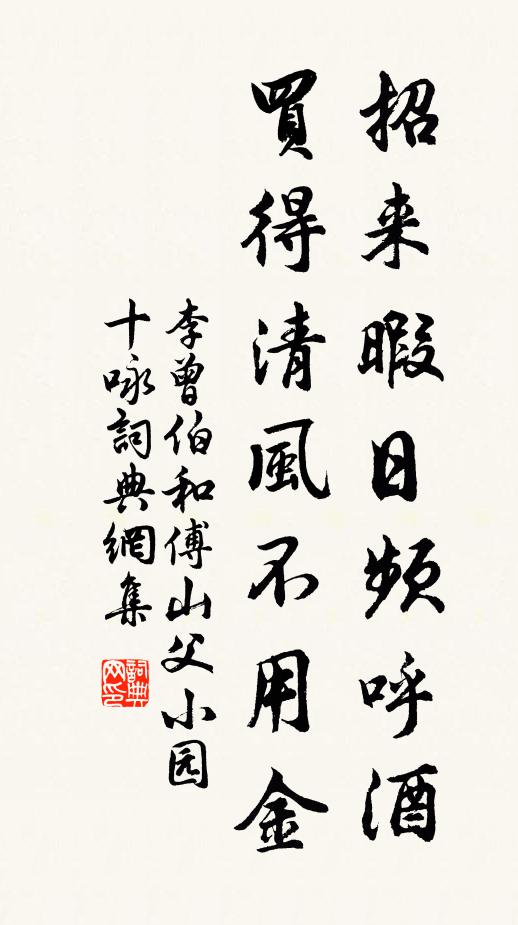 招来暇日频呼酒
買得清風不用金
李曾伯和傅山父小园
十咏詞典網集
詞典网印